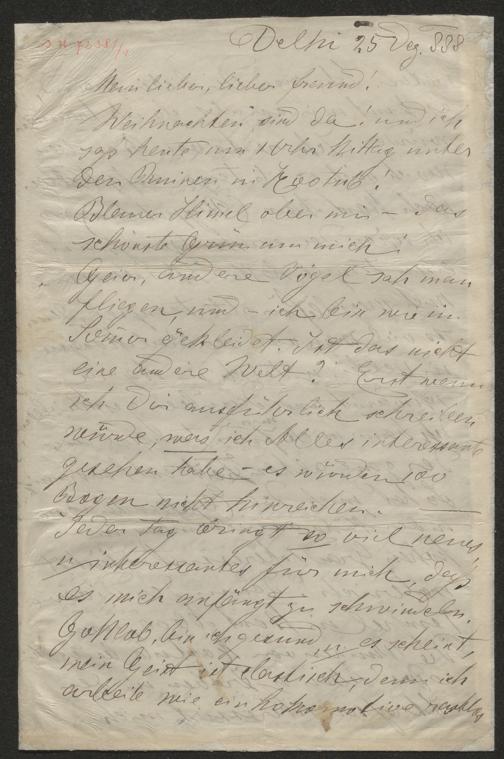 Delhi 25 Dez. 888
Mein lieber, lieber Freund!
Weihnachten sind da! und ich
sas heute um 1 Uhr Mittag unter
den Ruinen in Kootub!
Blauer Himel ober mir – das
schönste Grün um mich!
Geier, andere Vögel sah man
fliegen, und – ich bin wie im
Somer gekleidet. Ist das nicht
eine andere Welt? Erst wenn
ich Dir ausführlich schreiben
würde, was ich Alles interessante
gesehen habe – es würden 100
Bogen nicht hinreichen.
Jeder Tag bringt so viel neues
u interessantes für mich, das
es mich anfängt zu schwindeln.
Gottlob, bin ich gesund, u es scheint,
mein Geist ist elastisch, denn ich
arbeite wie ein Lokomotive